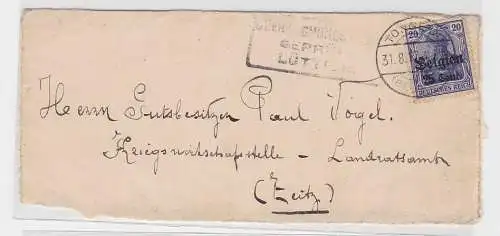 GEPRÜ
LÜTT
TONG
31.8.
20 20
Belgien
25 Cent.
DEUTSCHES REICH
Herrn Gutsbesitzer Paul Vogel.
Kriegswirtschaftsstelle - Landratsamt
(Zeitz)